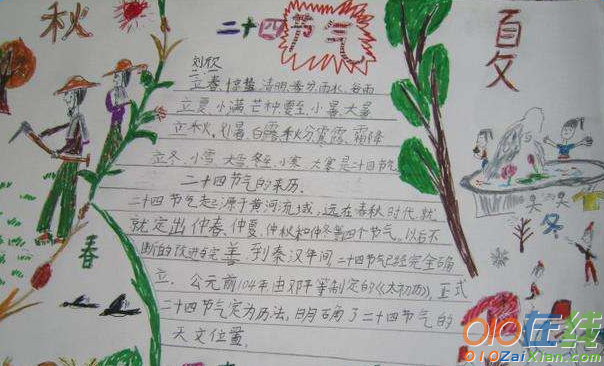 秋
二十四节气
夏
刘欣
立春 惊蛰 清明 春分 雨水、谷雨
立夏、小满 芒种 夏至、小暑 大暑
立秋、处暑 白露 秋分 寒露、霜降
立冬、小雪 大雪 冬至、小寒、大寒是二十四节气
二十四节气的来历.
二十四节气起源于黄河流域，远在春秋时代,就
就定出仲春、仲夏、仲秋和仲冬等四个节气。以后不
断的改进与完善 到秦汉年间,二十四节气已经完全确
立. 公元前104年由邓平等制定的《太初历》,正式
二十四节气定为历法，明确了二十四节气的
天文位置.
春
冬
010在线
010ZaiXian.com